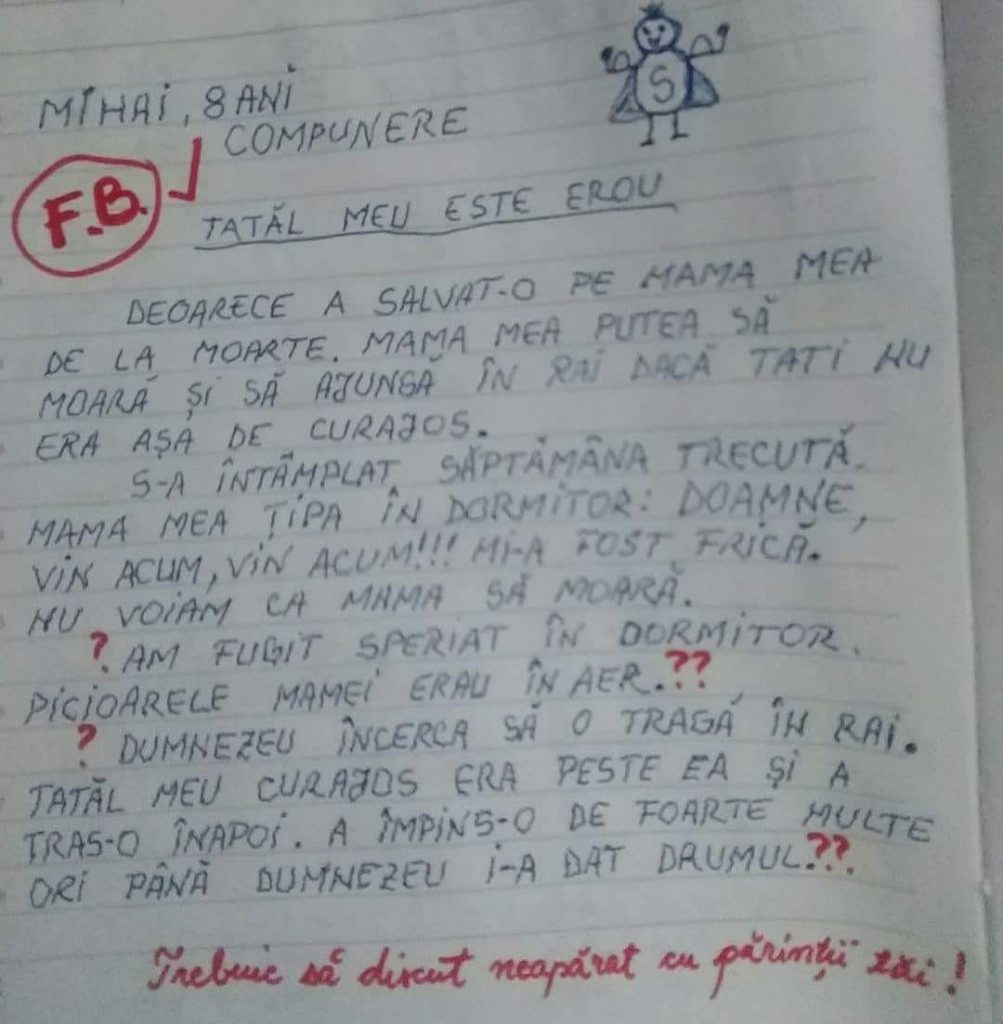 MIHAI, 8 ANI
COMPUNERE
F.B.
TATĂL MEU ESTE EROU
S
DEOARECE A SALVAT-O PE MAMA MEA
DE LA MOARTE. MAMA MEA PUTEA SĂ
MOARĂ ȘI SĂ AJUNGĂ ÎN RAI DACĂ TATI NU
ERA AȘA DE CURAJOS.
S-A ÎNTÂMPLAT SĂPTĂMÂNA TRECUTĂ.
MAMA MEA ȚIPA ÎN DORMITOR: DOAMNE,
VIN ACUM, VIN ACUM!!! MI-A FOST FRICĂ.
NU VOIAM CA MAMA SĂ MOARĂ.
? AM FUGIT SPERIAT ÎN DORMITOR.
PICIOARELE MAMEI ERAU ÎN AER.??
? DUMNEZEU ÎNCERCA SĂ O TRAGĂ ÎN RAI.
TATĂL MEU CURAJOS ERA PESTE EA ȘI A
TRAS-O ÎNAPOI. A ÎMPINS-O DE FOARTE MULTE
ORI PÂNĂ DUMNEZEU I-A DAT DRUMUL.??
Trebuie să discut neapărat cu părinții tăi!